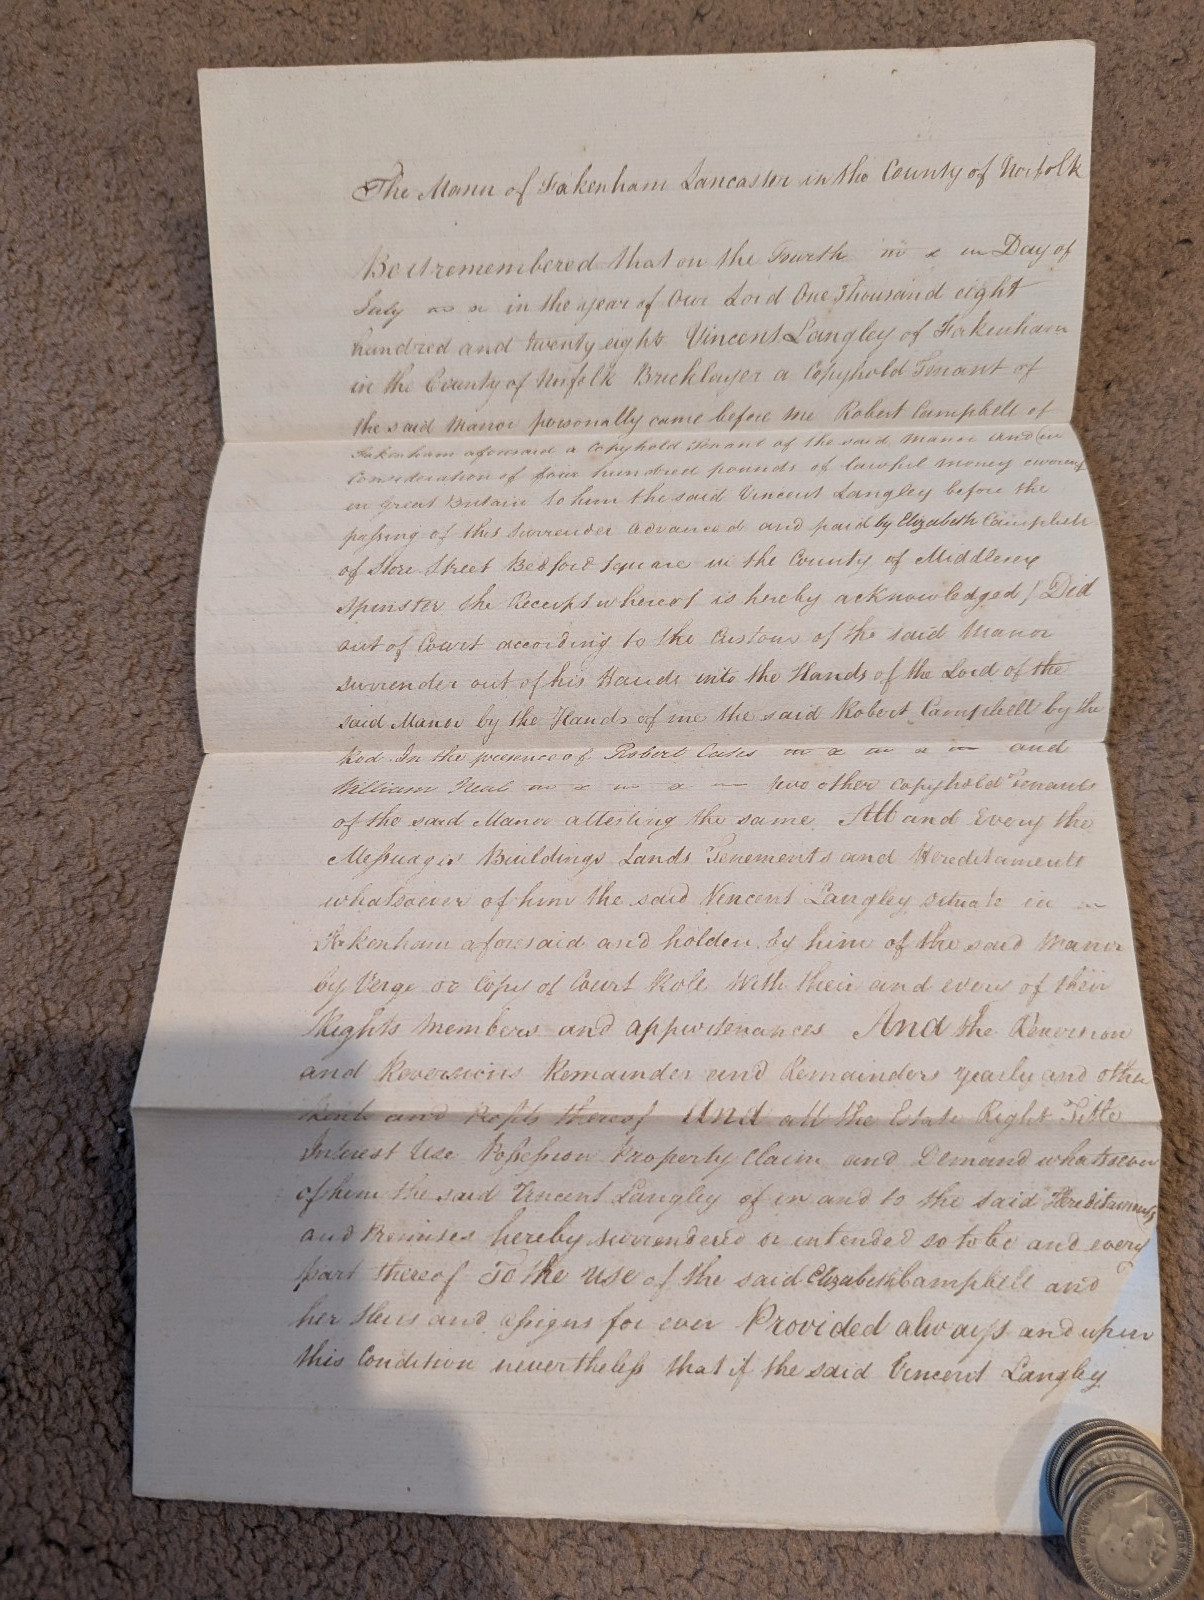 The Manor of Fakenham Lancaster in the County of Norfolk
Be it remembered that on the Fourth Day of
July in the year of Our Lord One Thousand eight
hundred and twenty eight Vincent Langley of Fakenham
in the County of Norfolk Bricklayer a Copyhold Tenant of
the said Manor personally came before me Robert Campbell of
Fakenham aforesaid a Copyhold Tenant of the said Manor and (in
Consideration of four hundred pounds of lawful money current
in Great Britain to him the said Vincent Langley before the
passing of this surrender advanced and paid by Elizabeth Campbell
of Store Street Bedford Square in the County of Middlesex
Spinster the Receipt whereof is hereby acknowledged) Did
out of Court according to the Custom of the said Manor
surrender out of his Hands into the Hands of the Lord of the
said Manor by the Hands of me the said Robert Campbell by the
Rod In the presence of Robert Cates and
William Neal two other Copyhold Tenants
of the said Manor attesting the same All and Every the
Messuages Buildings Lands Tenements and Hereditaments
whatsoever of him the said Vincent Langley situate in
Fakenham aforesaid and holden by him of the said Manor
by Verge or Copy of Court Roll With their and every of their
Rights Members and appurtenances And the Reversion
and Reversions Remainder and Remainders yearly and other
Rents and Profits thereof And all the Estate Right Title
Interest Use Possession Property Claim and Demand whatsoever
of him the said Vincent Langley of in and to the said Hereditaments
and Premises hereby surrendered or intended so to be and every
part thereof To the use of the said Elizabeth Campbell and
her Heirs and assigns for ever Provided always and upon
this Condition nevertheless that if the said Vincent Langley